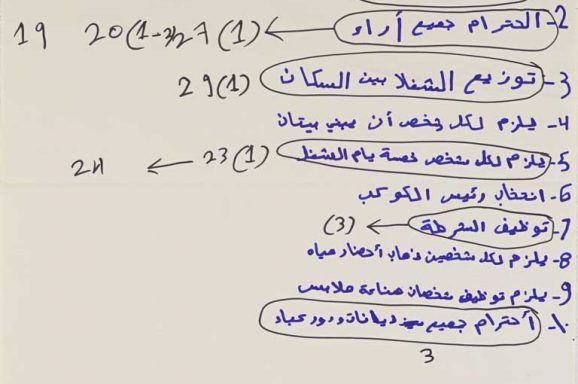 2- الحترام جميع أراء ← 27(1) 20(1-3) 19
3- توزيع الشغلا بين السكان 29(1)
4- يلزم لكل شخص أن يبني بيتان
5- يلزم لكل شخص خمسة يام الشغل 23(1) ← 24
6- انتخاب رئيس الكوكب
7- توظيف الشرطة ← (3)
8- يلزم لكل شخصين ذهاب أحضار مياه
9- يلزم توظيف شخصان صناعة ملابس
10- أحترام جميع ديانات ودور عباد
3